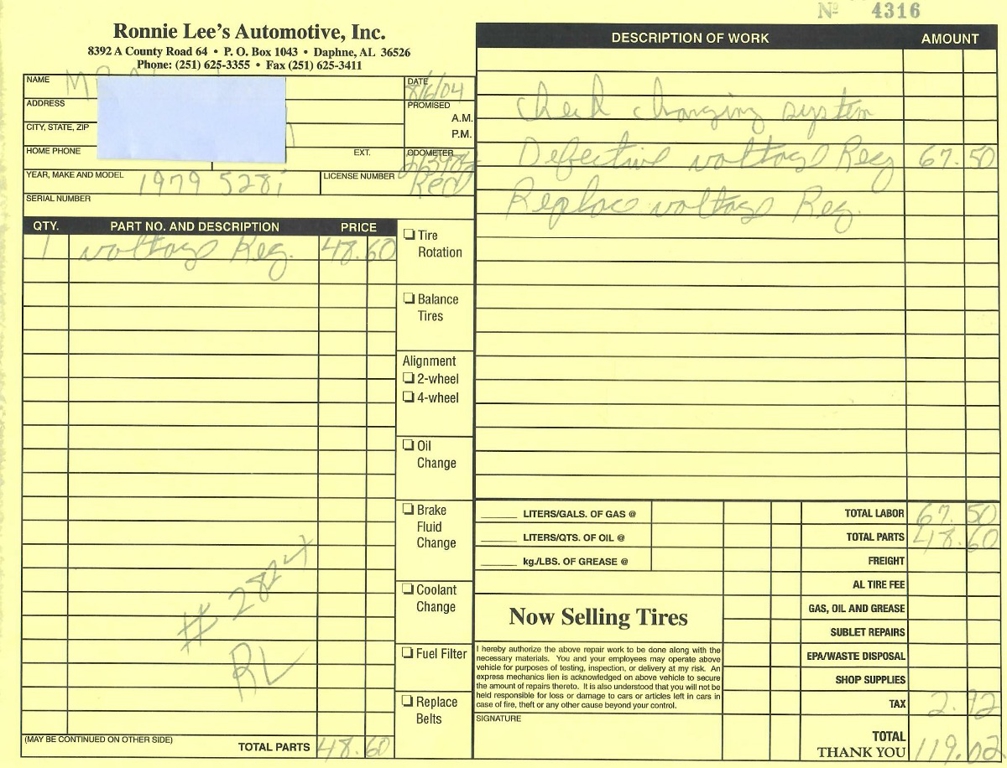 Nº 4316
Ronnie Lee's Automotive, Inc.
8392 A County Road 64 • P. O. Box 1043 • Daphne, AL 36526
Phone: (251) 625-3355 • Fax (251) 625-3411
NAME
DATE 8/6/04
ADDRESS
PROMISED
A.M.
P.M.
CITY, STATE, ZIP
HOME PHONE EXT.
ODOMETER
YEAR, MAKE AND MODEL 1979 528i
LICENSE NUMBER Red
SERIAL NUMBER
QTY. PART NO. AND DESCRIPTION PRICE
1 voltage Reg. 48.60
(MAY BE CONTINUED ON OTHER SIDE)
# 2824
RL
TOTAL PARTS 48.60
❏ Tire
Rotation
❏ Balance
Tires
Alignment
❏ 2-wheel
❏ 4-wheel
❏ Oil
Change
❏ Brake
Fluid
Change
❏ Coolant
Change
❏ Fuel Filter
❏ Replace
Belts
DESCRIPTION OF WORK AMOUNT
check charging system
Defective voltage Reg 67.50
Replace voltage Reg.
______ LITERS/GALS. OF GAS @
______ LITERS/QTS. OF OIL @
______ kg./LBS. OF GREASE @
Now Selling Tires
I hereby authorize the above repair work to be done along with the
necessary materials. You and your employees may operate above
vehicle for purposes of testing, inspection, or delivery at my risk. An
express mechanics lien is acknowledged on above vehicle to secure
the amount of repairs thereto. It is also understood that you will not be
held responsible for loss or damage to cars or articles left in cars in
case of fire, theft or any other cause beyond your control.
SIGNATURE
TOTAL LABOR 67.50
TOTAL PARTS 48.60
FREIGHT
AL TIRE FEE
GAS, OIL AND GREASE
SUBLET REPAIRS
EPA/WASTE DISPOSAL
SHOP SUPPLIES
TAX 2.92
TOTAL 119.02
THANK YOU